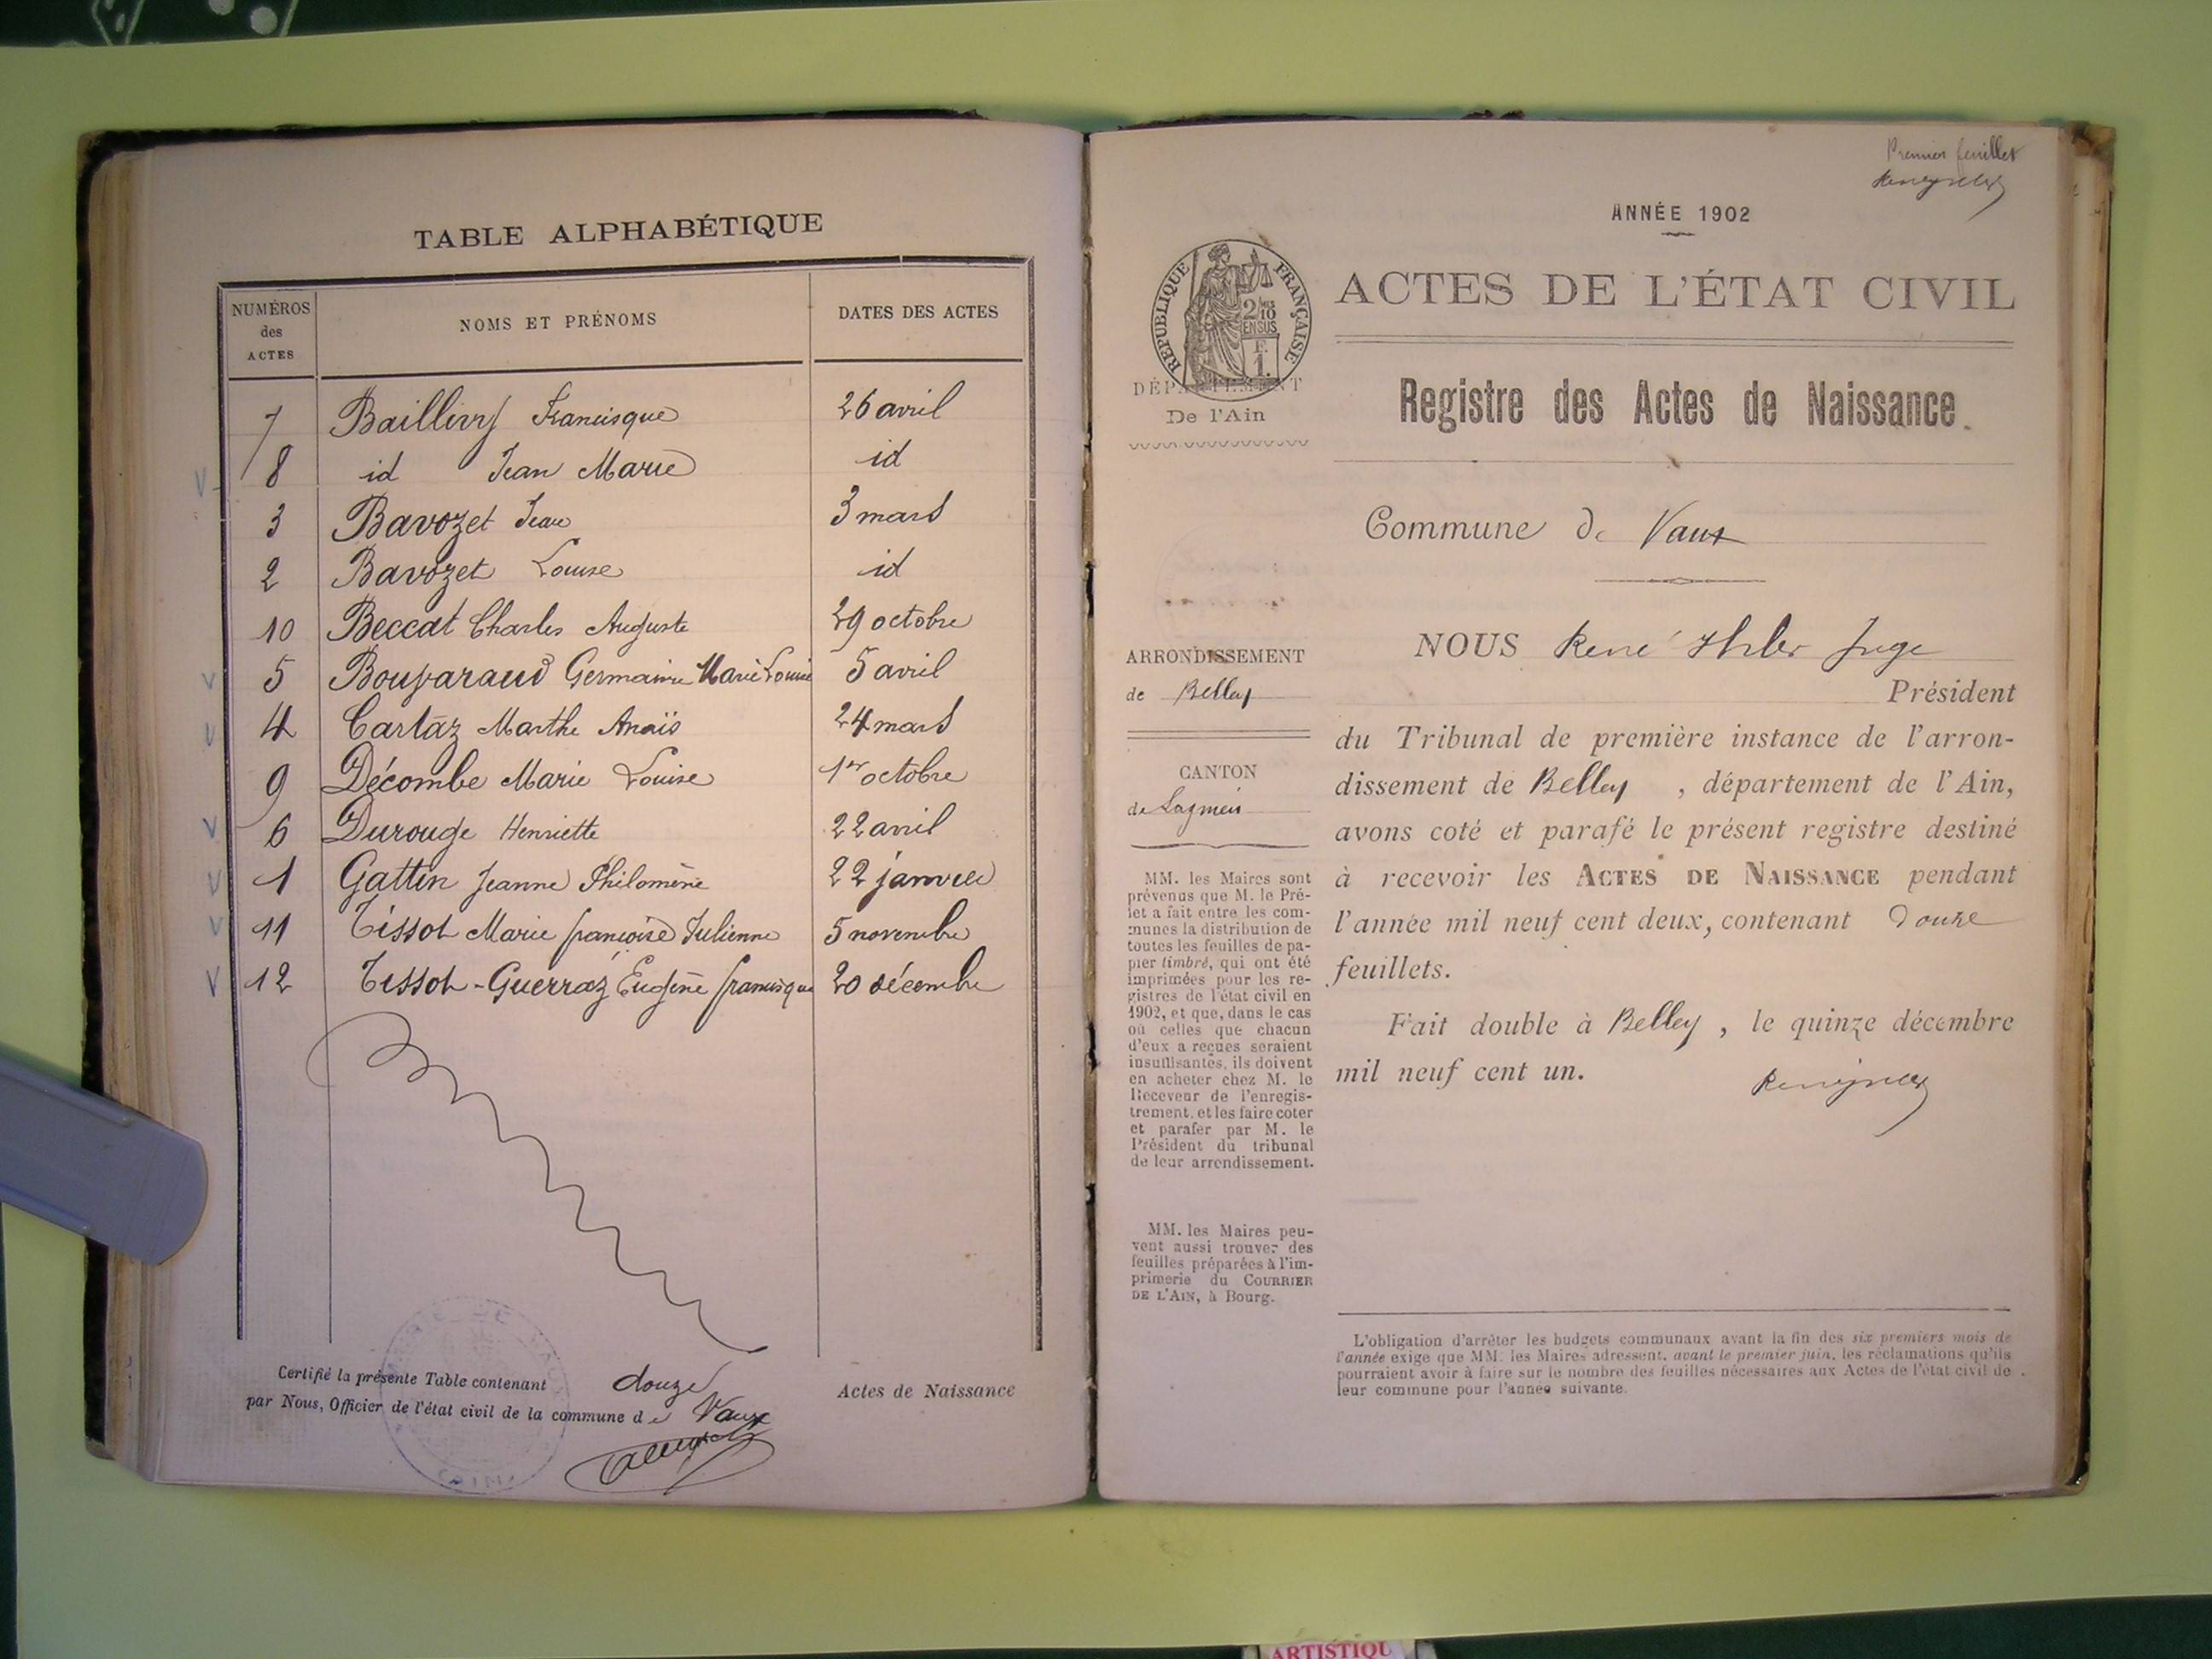 TABLE ALPHABÉTIQUE
NUMÉROS
des
ACTES
NOMS ET PRÉNOMS
DATES DES ACTES
7 Baillivy Francisque 26 avril
8 id Jean Marie id
3 Bavozet Jean 3 mars
2 Bavozet Louise id
10 Beccat Charles Auguste 29 octobre
V 5 Bouvaraud Germaine Marie Louise 5 avril
V 4 Cartaz Marthe Anaïs 24 mars
9 Décombe Marie Louise 1er octobre
V 6 Durouge Henriette 22 avril
V 1 Gattin Jeanne Philomène 22 janvier
V 11 Tissot Marie françoise Julienne 5 novembre
V 12 Tissot-Guerraz Eugène francisque 20 décembre
Certifié la présente Table contenant douze Actes de Naissance
par Nous, Officier de l'état civil de la commune de Vaux
Premier feuillet
ANNÉE 1902
RÉPUBLIQUE FRANÇAISE
2/10
EN SUS
F.
1.
ACTES DE L'ÉTAT CIVIL
DÉPARTEMENT
De l'Ain
Registre des Actes de Naissance.
Commune de Vaux
ARRONDISSEMENT
de Belley
CANTON
de Lagnieu
MM. les Maires sont
prévenus que M. le Pré-
fet a fait entre les com-
munes la distribution de
toutes les feuilles de pa-
pier timbré, qui ont été
imprimées pour les re-
gistres de l'état civil en
1902, et que, dans le cas
où celles que chacun
d'eux a reçues seraient
insuffisantes, ils doivent
en acheter chez M. le
Receveur de l'enregis-
trement, et les faire coter
et parafer par M. le
Président du tribunal
de leur arrondissement.
MM. les Maires peu-
vent aussi trouver des
feuilles préparées à l'im-
primerie du COURRIER
DE L'AIN, à Bourg.
NOUS René Juge
Président
du Tribunal de première instance de l'arron-
dissement de Belley , département de l'Ain,
avons coté et parafé le présent registre destiné
à recevoir les ACTES DE NAISSANCE pendant
l'année mil neuf cent deux, contenant Douze
feuillets.
Fait double à Belley , le quinze décembre
mil neuf cent un.
L'obligation d'arrêter les budgets communaux avant la fin des six premiers mois de
l'année exige que MM. les Maires adressent, avant le premier juin, les réclamations qu'ils
pourraient avoir à faire sur le nombre des feuilles nécessaires aux Actes de l'état civil de
leur commune pour l'année suivante.
ARTISTIQU